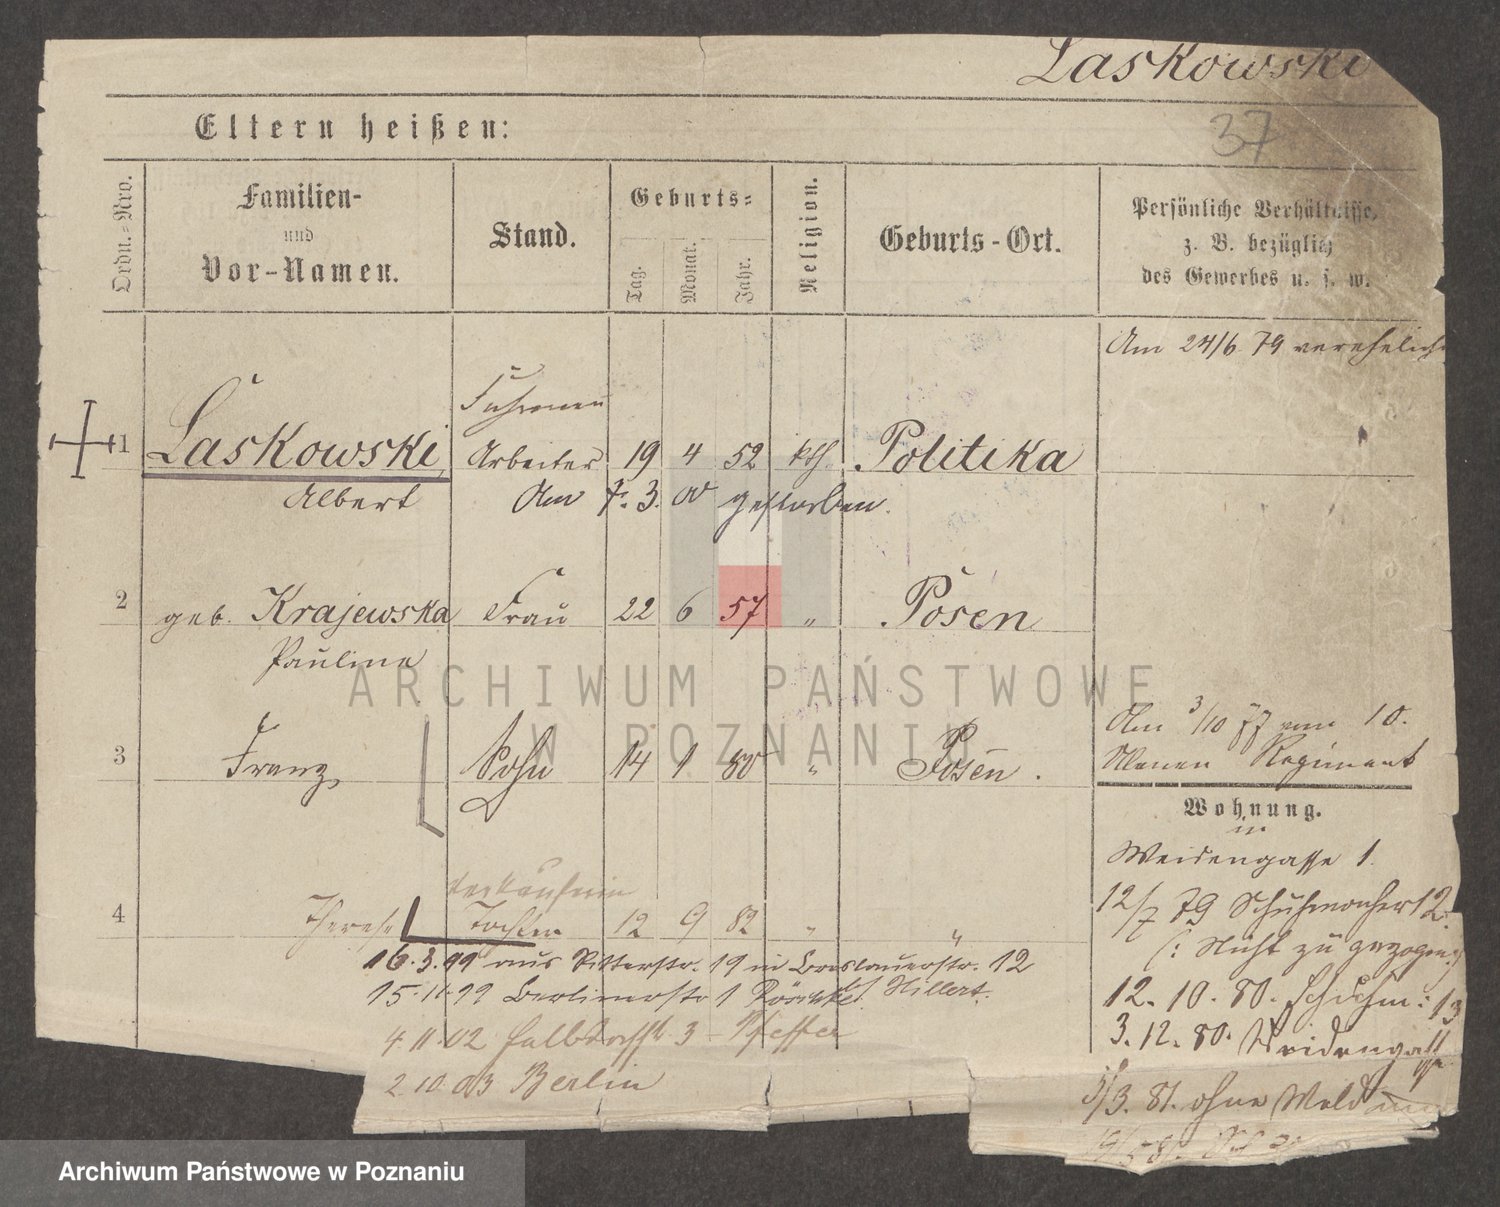 Laskowski
37
Eltern heißen:
Ordn.-Nro.
Familien-
und
Vor-Namen.
Stand.
Geburts-
Tag.
Monat.
Jahr.
Religion.
Geburts-Ort.
Persönliche Verhältnisse,
z. B. bezüglich
des Gewerbes u. s. w.
Am 24/6 79 verehelich
1 Laskowski Arbeiter 19 4 52 kth. Politika
Albert Am 7. 3. 00 gestorben.
2 geb. Krajewska Frau 22 6 57 " Posen
Pauline
3 Franz Sohn 14 1 80 " Posen.
Am 3/10 77 vom 10.
Regiment
Wohnung.
in
Weidengasse 1.
4 Therese Tochter 12 9 82 " "
Verkäuferin
12/7 79 Schuhmacher 12
(: Nicht zu gezogen:)
16.3.99 aus Ritterstr. 19 in Breslauerstr. 12
15.11.99 Berlinerstr 1 Hillert.
12. 10. 80. Schuhm: 13
3. 12. 80. Weidengasse
4.11.02 3 - Pfeffer
2.10.03 Berlin
3. 81. ohne
ARCHIWUM PAŃSTWOWE
W POZNANIU
Archiwum Państwowe w Poznaniu